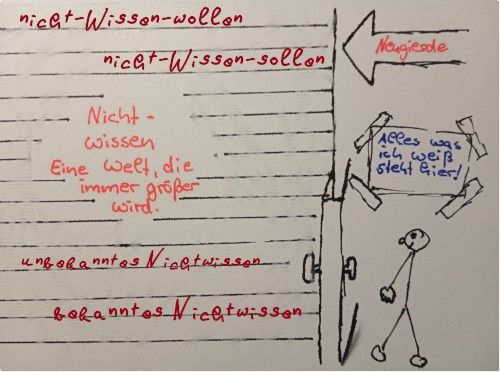 nicht-Wissen-wollen
nicht-Wissen-sollen
Neugierde
Nicht-
wissen
Eine Welt, die
immer größer
wird.
Alles was
ich weiß
steht hier!
unbekanntes Nichtwissen
bekanntes Nichtwissen